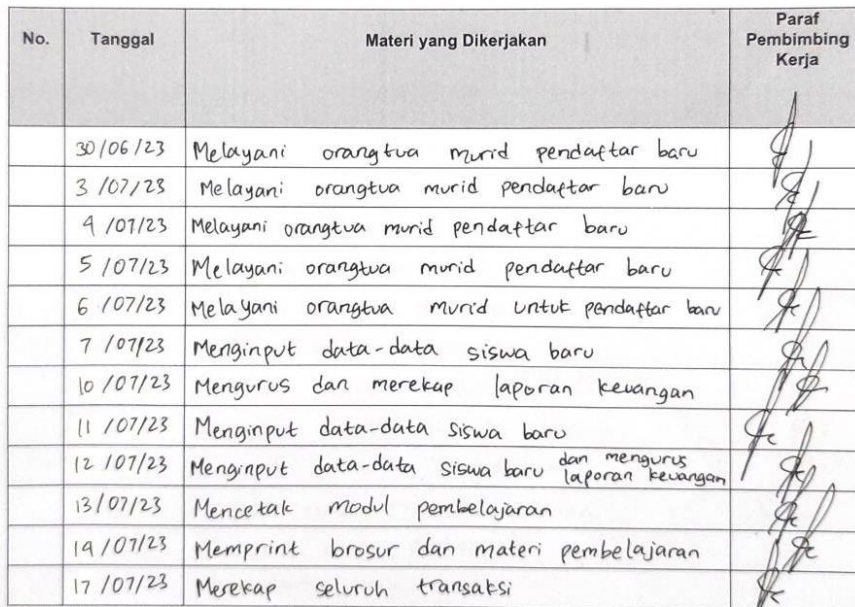 No. Tanggal Materi yang Dikerjakan Paraf Pembimbing Kerja
30/06/23 Melayani orangtua murid pendaftar baru
3/07/23 Melayani orangtua murid pendaftar baru
4/07/23 Melayani orangtua murid pendaftar baru
5/07/23 Melayani orangtua murid pendaftar baru
6/07/23 Melayani orangtua murid untuk pendaftar baru
7/07/23 Menginput data-data siswa baru
10/07/23 Mengurus dan merekap laporan keuangan
11/07/23 Menginput data-data siswa baru
12/07/23 Menginput data-data siswa baru dan mengurus laporan keuangan
13/07/23 Mencetak modul pembelajaran
14/07/23 Memprint brosur dan materi pembelajaran
17/07/23 Merekap seluruh transaksi